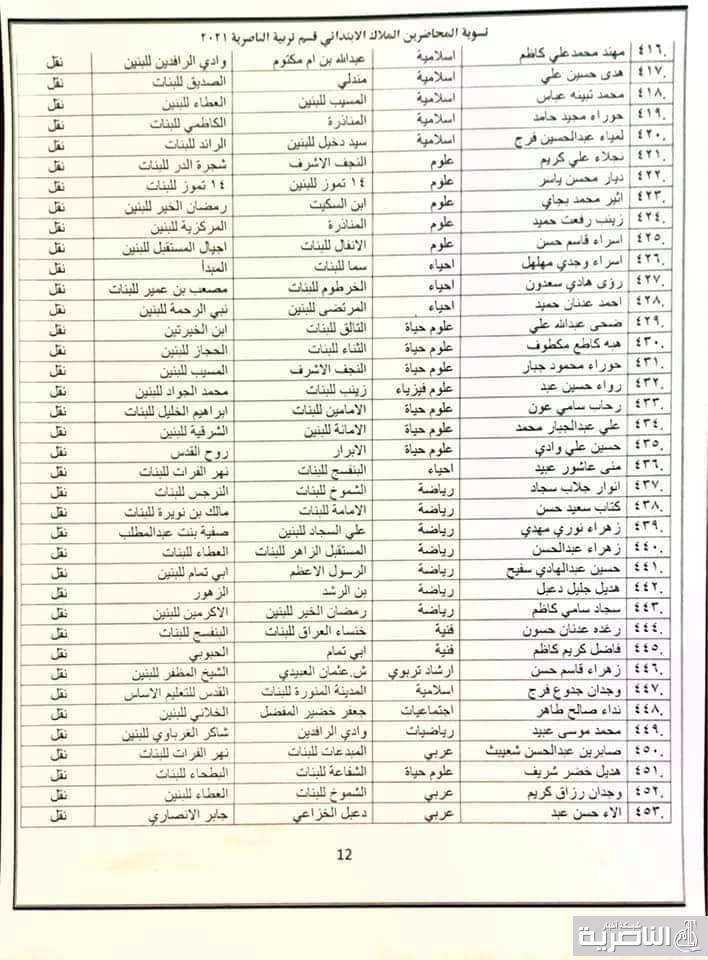 تسوية المحاضرين الملاك الابتدائي قسم تربية الناصرية ٢٠٢١
٤١٦. مهند محمدعلي كاظم اسلامية عبدالله بن ام مكتوم وادي الرافدين للبنين نقل
٤١٧. هدى حسين علي اسلامية مندلي الصديق للبنات نقل
٤١٨. محمد تبينه عباس اسلامية المسيب للبنين العطاء للبنين نقل
٤١٩. حوراء مجيد حامد اسلامية المناذرة الكاظمي للبنات نقل
٤٢٠. لمياء عبدالحسين فرج اسلامية سيد دخيل للبنين الرائد للبنات نقل
٤٢١. نجلاء علي كريم علوم النجف الاشرف شجرة الدر للبنات نقل
٤٢٢. ديار محسن ياسر علوم ١٤ تموز للبنين ١٤ تموز للبنات نقل
٤٢٣. اثير محمد بجاي علوم ابن السكيت رمضان الخير للبنين نقل
٤٢٤. زينب رفعت حميد علوم المناذرة المركزية للبنين نقل
٤٢٥. اسراء قاسم حسن علوم الانفال للبنات اجيال المستقبل للبنين نقل
٤٢٦. اسراء وجدي مهلهل احياء سما للبنات المبدأ نقل
٤٢٧. رؤى هادي سعدون احياء الخرطوم للبنات مصعب بن عمير للبنات نقل
٤٢٨. احمد عدنان حميد احياء المرتضى للبنين نبي الرحمة للبنين نقل
٤٢٩. ضحى عبدالله علي علوم حياة التالق للبنات ابن الخيرتين نقل
٤٣٠. هبه كاطع مكطوف علوم حياة الثناء للبنات الحجاز للبنين نقل
٤٣١. حوراء محمود جبار علوم حياة النجف الاشرف المسيب للبنين نقل
٤٣٢. رواء حسين عبد علوم فيزياء زينب للبنات محمد الجواد للبنين نقل
٤٣٣. رحاب سامي عون علوم حياة الامامين للبنات ابراهيم الخليل للبنات نقل
٤٣٤. علي عبدالجبار محمد علوم حياة الامانة للبنين الشرقية للبنين نقل
٤٣٥. حسين علي وادي علوم حياة الابرار روح القدس نقل
٤٣٦. منى عاشور عبيد احياء البنفسج للبنات نهر الفرات للبنات نقل
٤٣٧. انوار جلاب سجاد رياضة الشموخ للبنات النرجس للبنات نقل
٤٣٨. كتاب سعيد حسن رياضة الامامة للبنات مالك بن نويرة للبنات نقل
٤٣٩. زهراء نوري مهدي رياضة علي السجاد للبنين صفية بنت عبدالمطلب نقل
٤٤٠. زهراء عبدالحسن رياضة المستقبل الزاهر للبنات العطاء للبنات نقل
٤٤١. حسين عبدالهادي سفيح رياضة الرسول الاعظم ابي تمام للبنين نقل
٤٤٢. هديل جليل دعبل رياضة بن الرشد الزهور نقل
٤٤٣. سجاد سامي كاظم رياضة رمضان الخير للبنين الاكرمين للبنين نقل
٤٤٤. رغده عدنان حسون فنية خنساء العراق للبنات البنفسج للبنات نقل
٤٤٥. فاضل كريم كاظم فنية ابي تمام الحبوبي نقل
٤٤٦. زهراء قاسم حسن ارشاد تربوي ش.عثمان العبيدي الشيخ المظفر للبنين نقل
٤٤٧. وجدان جدوع فرج اسلامية المدينة المنورة للبنات القدس للتعليم الاساس نقل
٤٤٨. نداء صالح طاهر اجتماعيات جعفر خضير المفضل الخلاني للبنين نقل
٤٤٩. محمد موسى عبيد رياضيات وادي الرافدين شاكر الغرباوي للبنين نقل
٤٥٠. صابرين عبدالحسن شعيبث عربي المبدعات للبنات نهر الفرات للبنات نقل
٤٥١. هديل خضر شريف علوم حياة الشفاعة للبنات البطحاء للبنات نقل
٤٥٢. وجدان رزاق كريم عربي الشموخ للبنات العطاء للبنين نقل
٤٥٣. الاء حسن عبد عربي دعبل الخزاعي جابر الانصاري نقل
12
شبكة اخبار
الناصرية